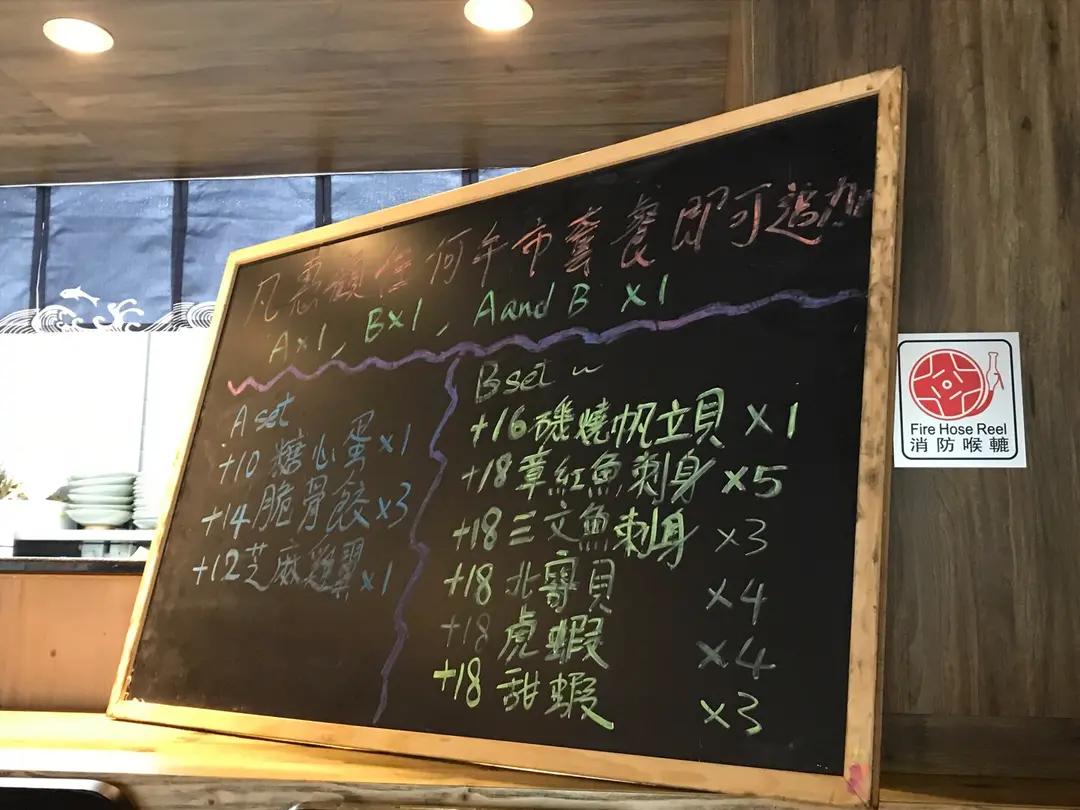 凡惠顧任何午市套餐即可追加
A×1, B×1, A and B ×1
A set
+10 糖心蛋×1
+14 脆骨餃×3
+12 芝麻雞翼×1
B set ~
+16 磯燒帆立貝 ×1
+18 章紅魚刺身 ×5
+18 三文魚刺身 ×3
+18 北寄貝 ×4
+18 虎蝦 ×4
+18 甜蝦 ×3
Fire Hose Reel
消防喉轆